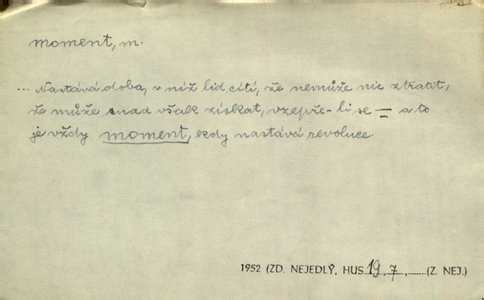 moment, m.
... Nastává doba, v níž lid cítí, že nemůže nic ztratit,
že může snad však získat, vzepře-li se — a to
je vždy moment, kdy nastává revoluce.
1952 (ZD. NEJEDLÝ, HUS. 19, 7, ....... (Z. NEJ.)